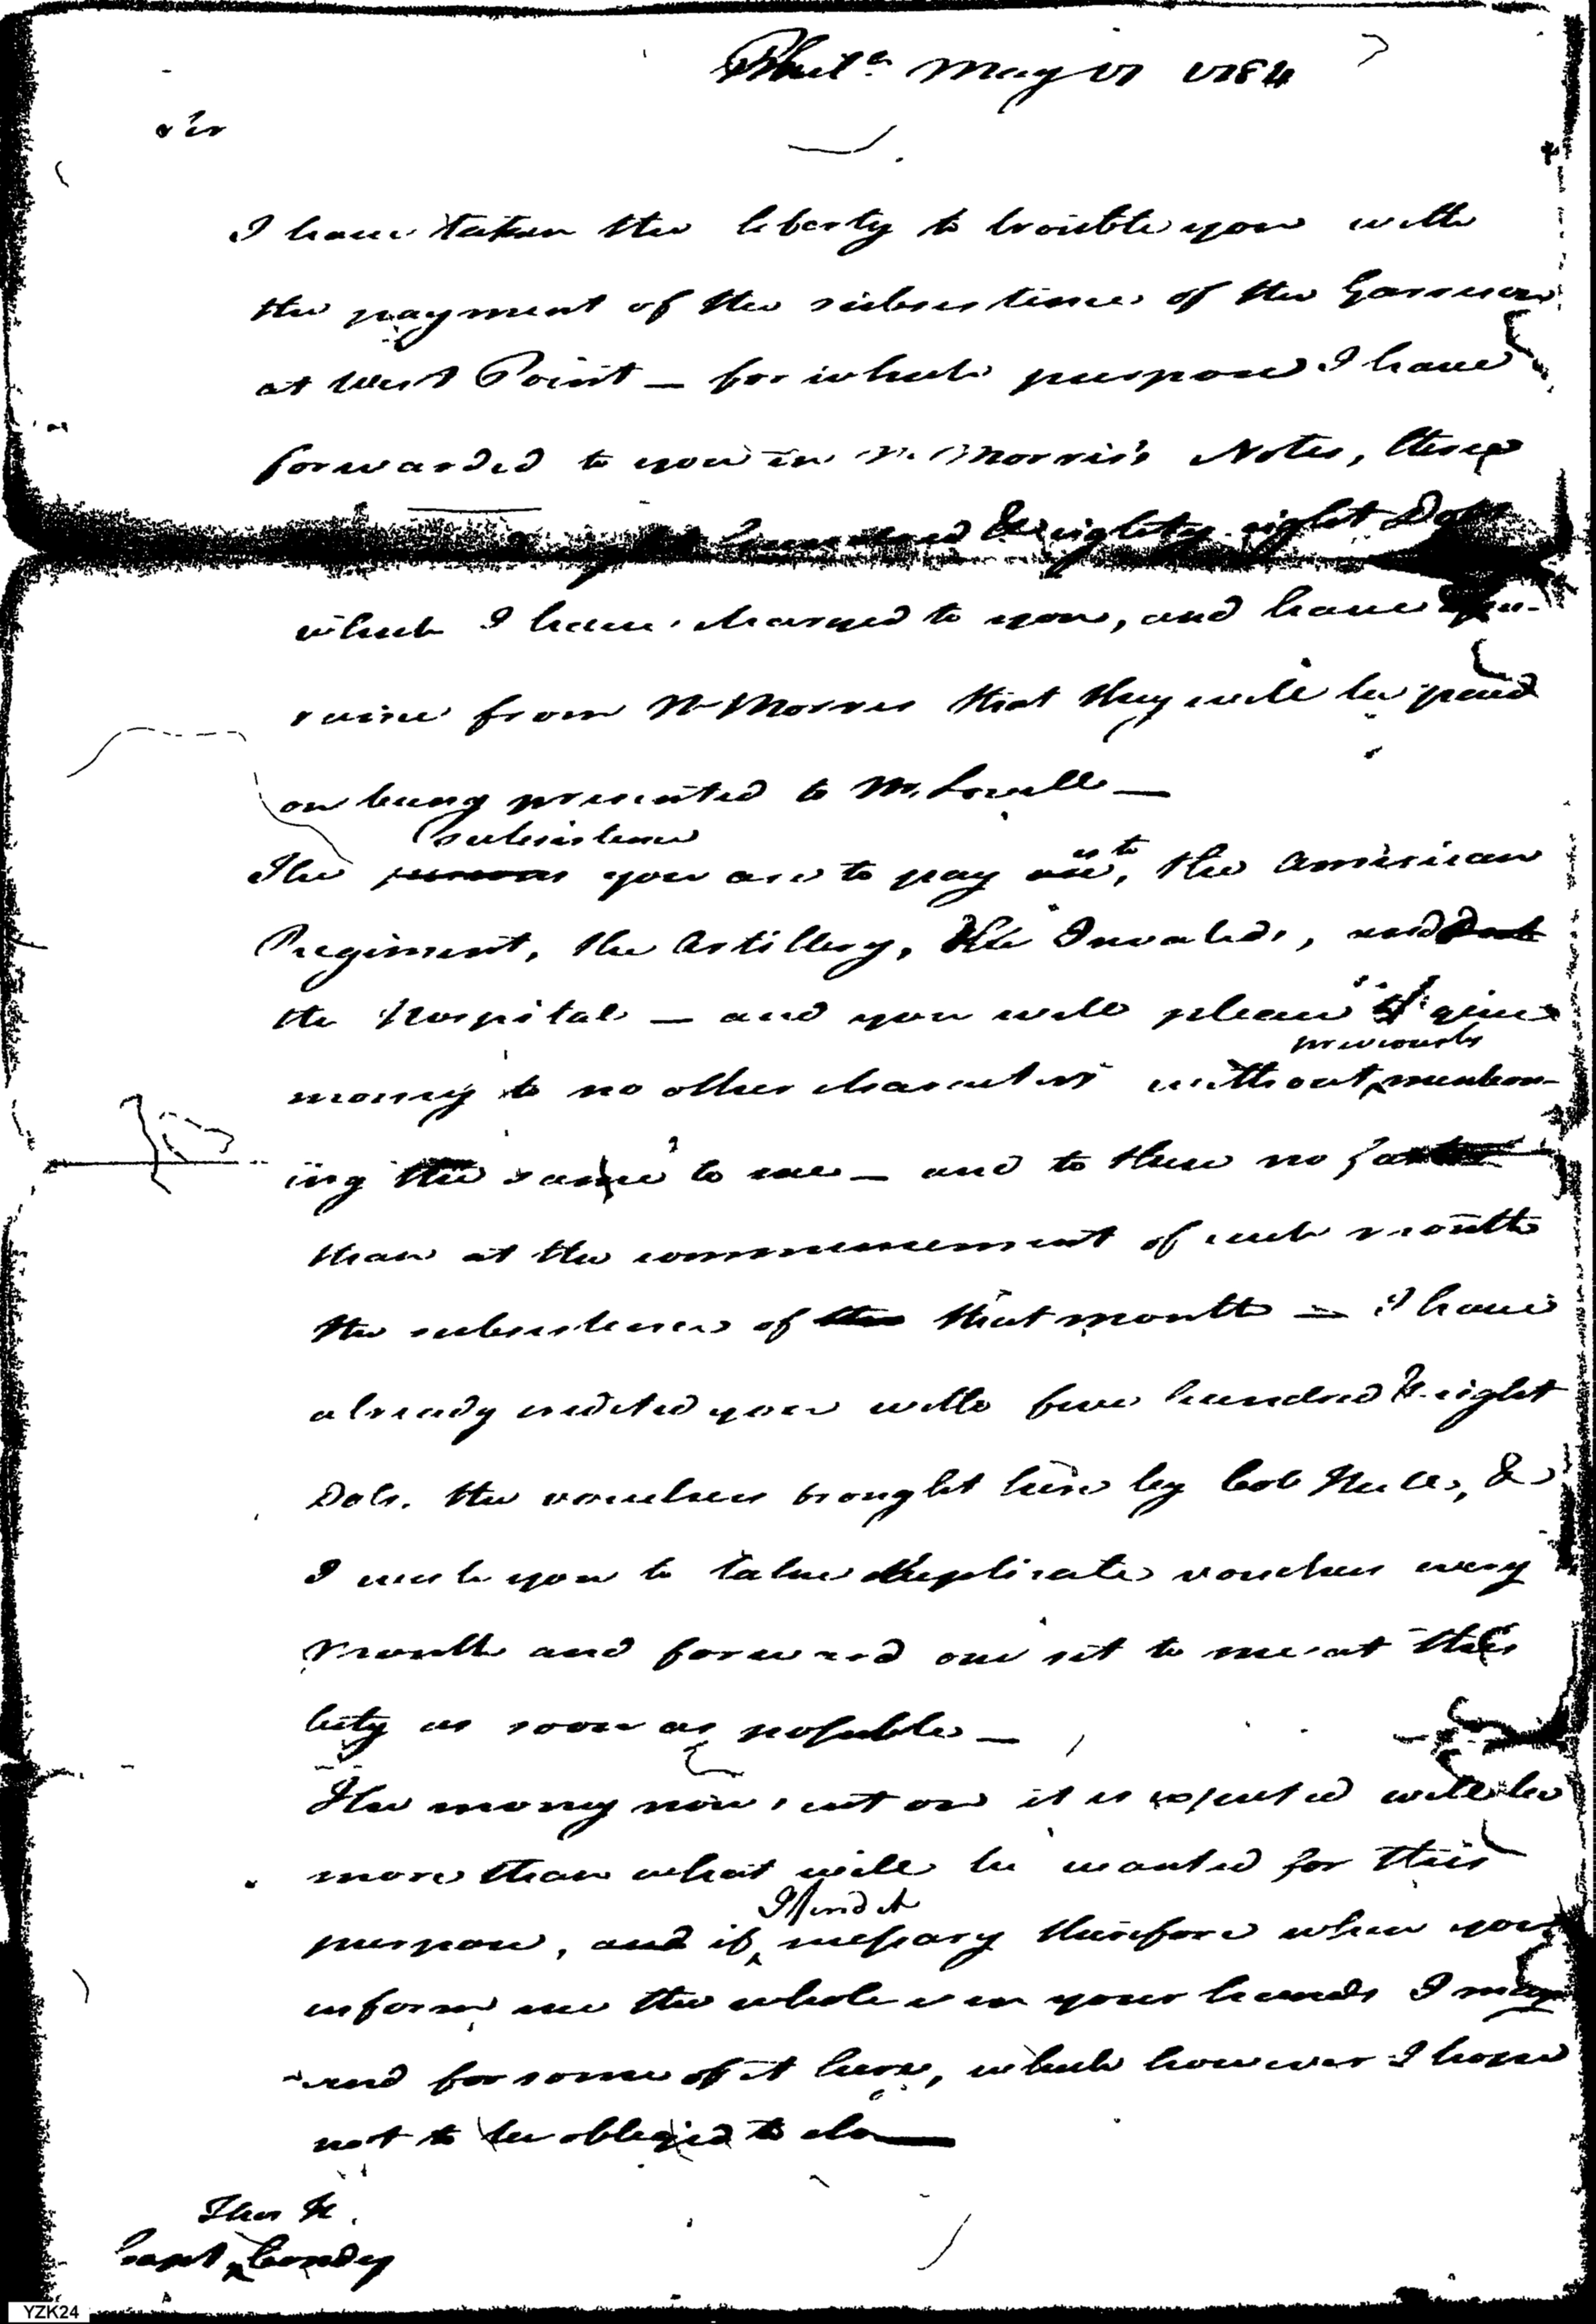 Phila May 17 1784
Sir
I have taken the liberty to trouble you with
the payment of the subsistence of the Garrison
at West Point — for which purpose I have
forwarded to you in Mr Morris's Notes, three
hundred & eighty eight Dols
which I have charged to you, and have
from Mr Morris that they will be paid
on being presented to Mr. Lovell —
subsistence
The you are to pay is to, the American
Regiment, the Artillery, the Invalids, and
the Hospital — and you will please to give
previously
money to no other characters without mention-
ing the same to me — and to these no
than at the commencement of each month
the subsistence of the that month — I have
already credited you with five hundred & eight
Dols. the vouchers brought here by Col Hull, &
I wish you to take duplicate vouchers every
month and forward one set to me at this
City as soon as possible —
The money now sent on it is expected will be
more than what will be wanted for this
I find it
purpose, and if necessary therefore when you
inform me the whole is in your hands I may
send for some of it here, which however I hope
not to be obliged to do —
Thos H.
Capt Condy
YZK24